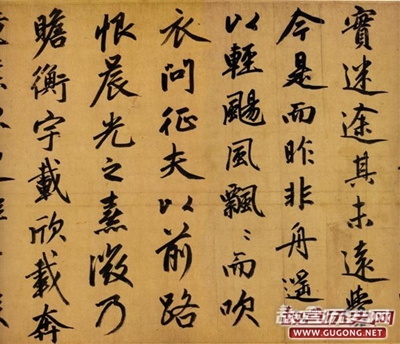 實迷途其未遠覺
今是而昨非舟遥
以輕颺風飄〻而吹
衣問征夫以前路
恨晨光之熹微乃
瞻衡宇載欣載奔
故宫历史网
www.GUGONG.NET